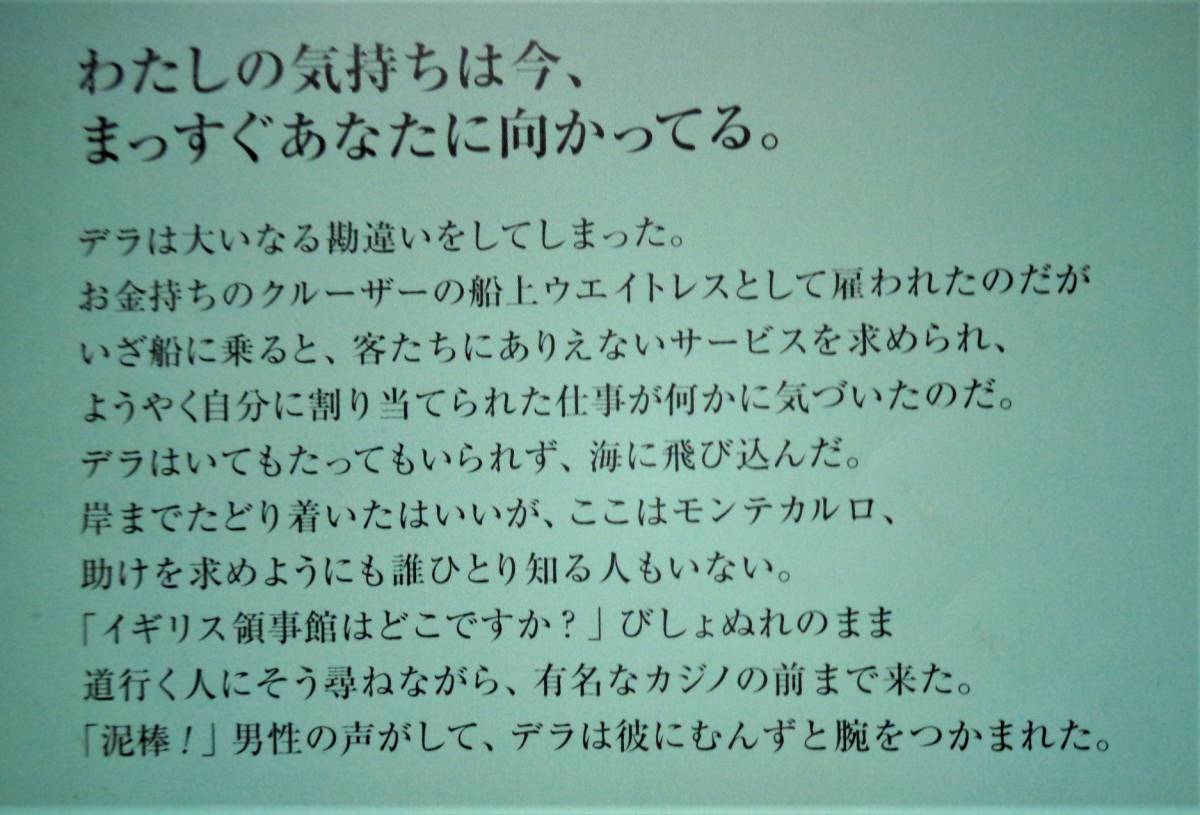 わたしの気持ちは今、
まっすぐあなたに向かってる。
デラは大いなる勘違いをしてしまった。
お金持ちのクルーザーの船上ウエイトレスとして雇われたのだが
いざ船に乗ると、客たちにありえないサービスを求められ、
ようやく自分に割り当てられた仕事が何かに気づいたのだ。
デラはいてもたってもいられず、海に飛び込んだ。
岸までたどり着いたはいいが、ここはモンテカルロ、
助けを求めようにも誰ひとり知る人もいない。
「イギリス領事館はどこですか？」びしょぬれのまま
道行く人にそう尋ねながら、有名なカジノの前まで来た。
「泥棒！」男性の声がして、デラは彼にむんずと腕をつかまれた。